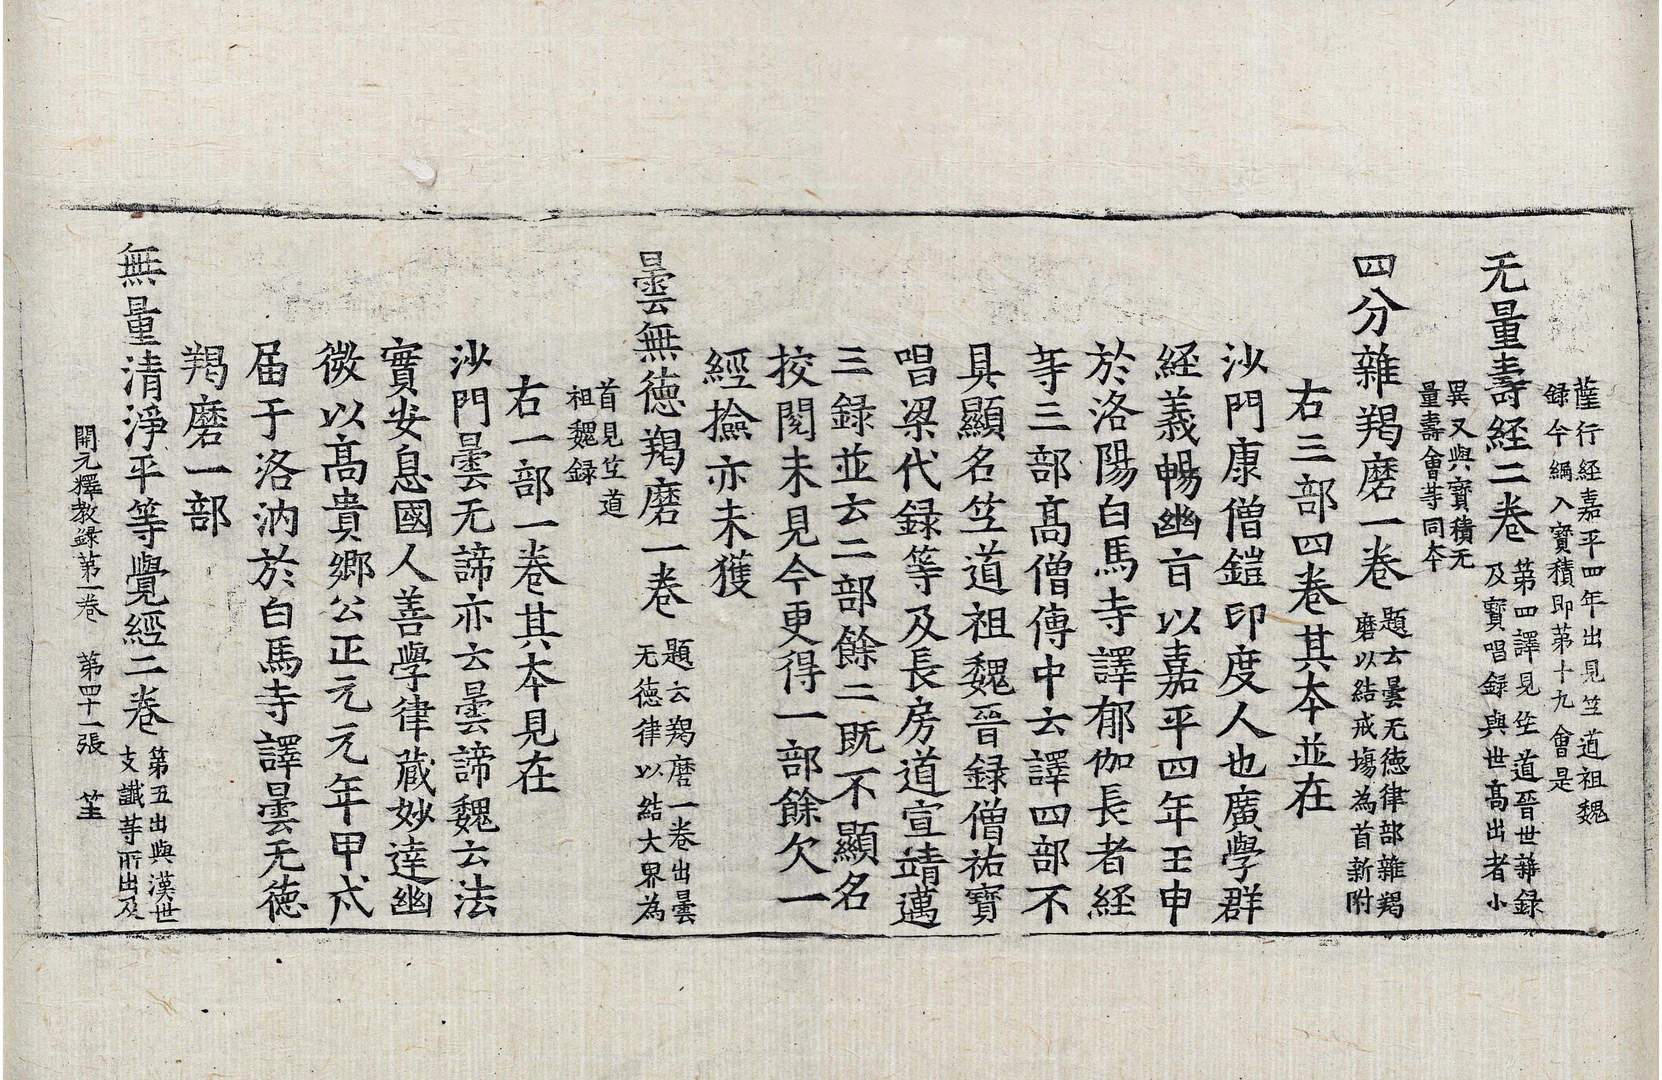 薩行經嘉平四年出見竺道祖魏
録今編入寳積即第十九會是
无量壽経二卷 第四譯見竺道晉世雜録
及寳唱録與世髙出者小
異又與寳積无
量壽會䓁同夲
四分雜羯磨一卷 題云曇无徳律部雜羯
磨以結戒塲為首新附
右三部四卷其夲並在
沙門康僧鎧印度人也廣學群
経義暢幽㫖以嘉平四年壬申
於洛陽白馬寺譯郁伽長者経
䓁三部髙僧傳中云譯四部不
具顯名竺道祖魏晉録僧祐寶
唱梁代録等及長房道宣靖邁
三録並云二部餘二既不顯名
挍閱未見今更得一部餘欠一
經撿亦未獲
曇無德羯磨一卷 題云羯磨一卷出曇
无德律以結大界為
首見竺道
祖魏録
右一部一卷其夲見在
沙門曇无諦亦云曇諦魏云法
實安息國人善學律藏妙達幽
微以髙貴鄉公正元元年甲戌
届于洛汭於白馬寺譯曇无德
羯磨一部
無量清淨平等覺經二卷 第五出與漢世
支讖䓁所出及
開元釋教錄第二卷 第四十一張 笙